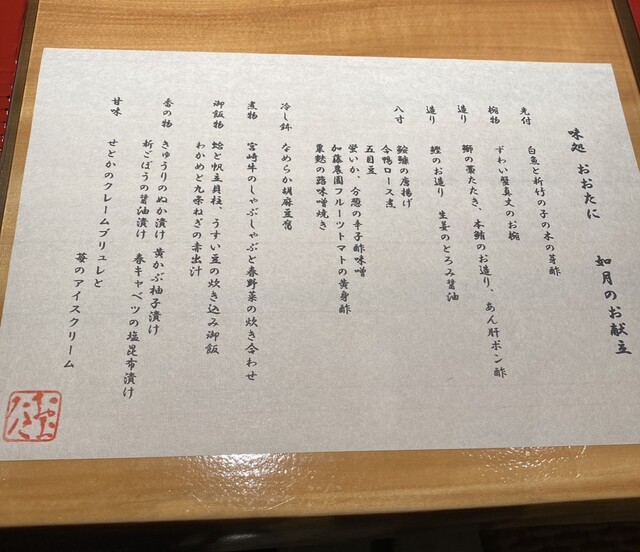 味処 おおたに
如月のお献立
先付
白魚と新竹の子の木の芽酢
椀物
ずわい蟹真丈のお椀
造り
鰤の藁たたき、本鮪のお造り、あん肝ポン酢
造り
鰹のお造り 生姜のとろみ醤油
八寸
鮟鱇の唐揚げ
合鴨ロース煮
五目豆
蛍いか、分葱の辛子酢味噌
加藤農園フルーツトマトの黄身酢
粟麩の蕗味噌焼き
冷し鉢
なめらか胡麻豆腐
煮物
宮崎牛のしゃぶしゃぶと春野菜の炊き合わせ
御飯物
蛤と帆立貝柱、うすい豆の炊き込み御飯
わかめと九条ねぎの赤出汁
香の物
きゅうりのぬか漬け 黄かぶ柚子漬け
新ごぼうの醤油漬け 春キャベツの塩昆布漬け
甘味
せとかのクレームブリュレと
苺のアイスクリーム